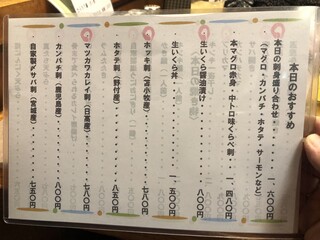 本日のおすすめ
本日の刺身盛り合わせ・・・・・一、六〇〇円
（マグロ・カンパチ・ホタテ・サーモンなど）
本マグロ赤身・中トロ味くらべ刺・・・一、四八〇円
生いくら醤油漬け・・・・・・・・八〇〇円
生いくら丼・・・・・・・・・・一、五〇〇円
ホッキ刺（苫小牧産）・・・・・・七八〇円
ホタテ刺（野付産）・・・・・・・八五〇円
マツカワカレイ刺（日高産）・・・・七八〇円
カンパチ刺（鹿児島産）・・・・・・八〇〇円
自家製〆サバ刺（宮城産）・・・・・七五〇円